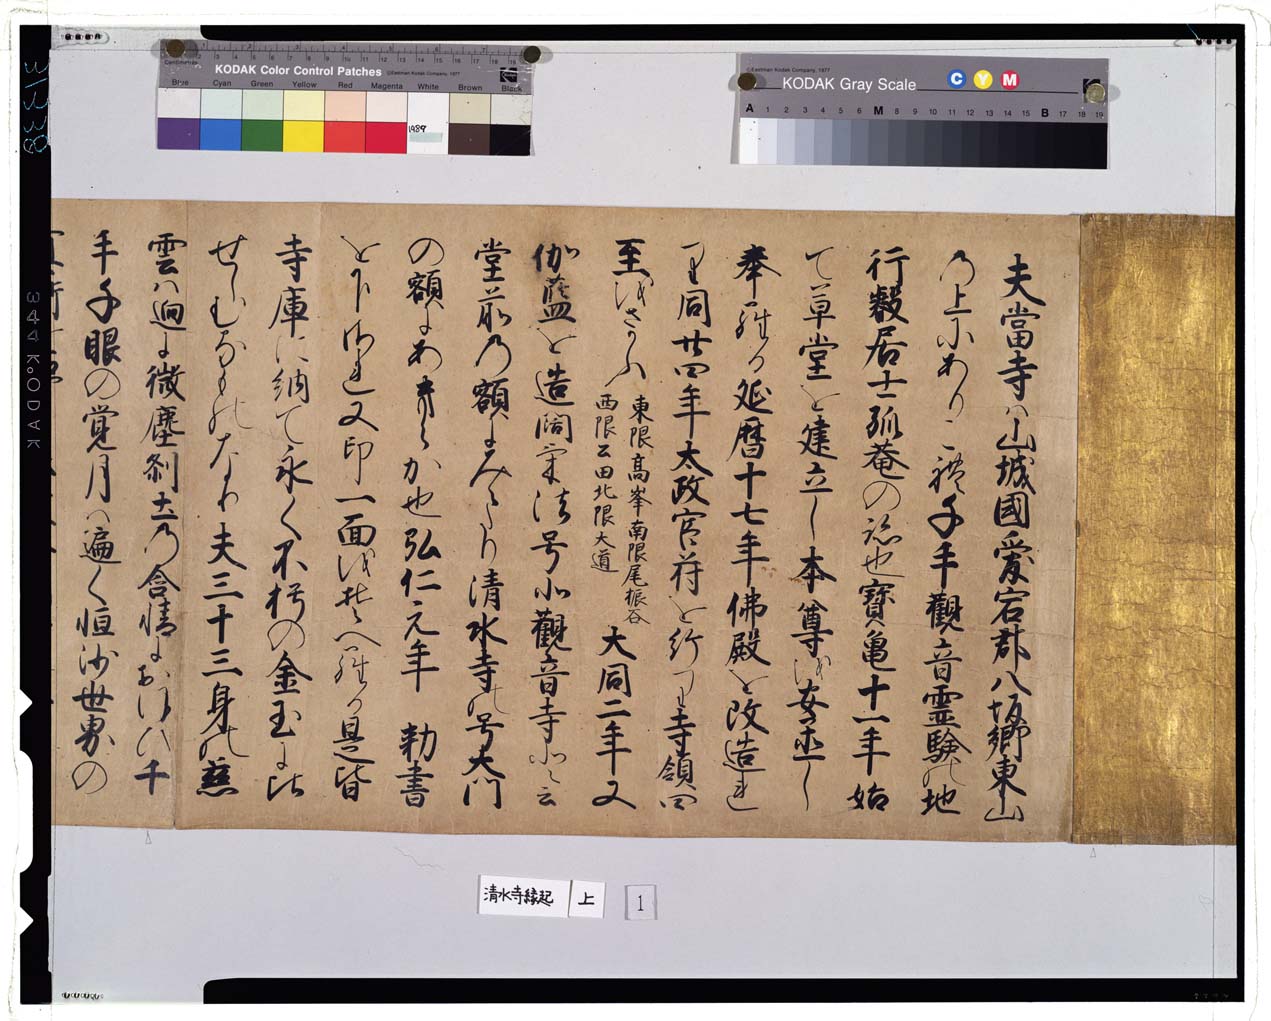 KODAK Color Control Patches
©Eastman Kodak Company, 1977
Blue Cyan Green Yellow Red Magenta White Brown Black
1489
©Eastman Kodak Company, 1977
KODAK Gray Scale
C Y M
A 1 2 3 4 5 6 M 8 9 10 11 12 13 14 15 B 17 18 19
夫當寺ハ山城國愛宕郡八坂郷東山
の上にあり是千手觀音霊験の地
行叡居士孤菴の跡也寶亀十一年始
て草堂を建立し本尊を安置し
奉維る延暦十七年佛殿を改造
同廿四年太政官符を給り寺領四
至をさたふ
東限高峯南限尾振谷
西限公田北限大道
大同二年又
伽藍を造閤宇法号に觀音寺と云
堂前の額にみえたり清水寺の号大門
の額にあきらか也弘仁元年 勅書
を下され又印一面をそへる是皆
寺庫に納て永く不朽の金玉に比
せしむるものなり夫三十三身の慈
雲ハ迥に微塵刹土の含情におほひ千
手千眼の覚月ハ遍く恒沙世界の
清水寺縁起 上 1
344 KODAK